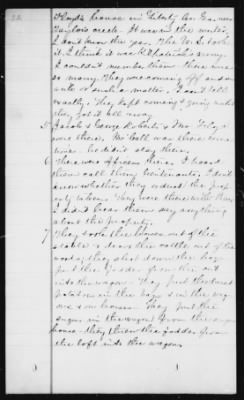 Floyd's house in Liberty Co. Ga. near
Taylors creek. It was in the winter,
I don't know the year. The U.S. took
it. I think it was Kilpatrick's army.
I couldn't number them there were
so many. They were coming off and on
a or such a matter. I can't tell
exactly. They kept coming & going until
they got it all away.
5 Jacob & George Roberts & Mr. Floyd
were there, He both was there some
time. he didn't stay there.
6 There were officers there. I heard
them call them lieutenants, I don't
know whether they ordered the prop-
erty taken. They were there with them,
I didn't hear them say anything
about the property.
7 They took the horses out of the
stable & drove the cattle out of the
woods, they shot down the hogs
put the fodder from the
into the wagon. They put the
potatoes in the bags & in the wag-
ons & on horses. They put the
sugar in the wagon from the
house - they threw the fodder from
the loft into the wagon.